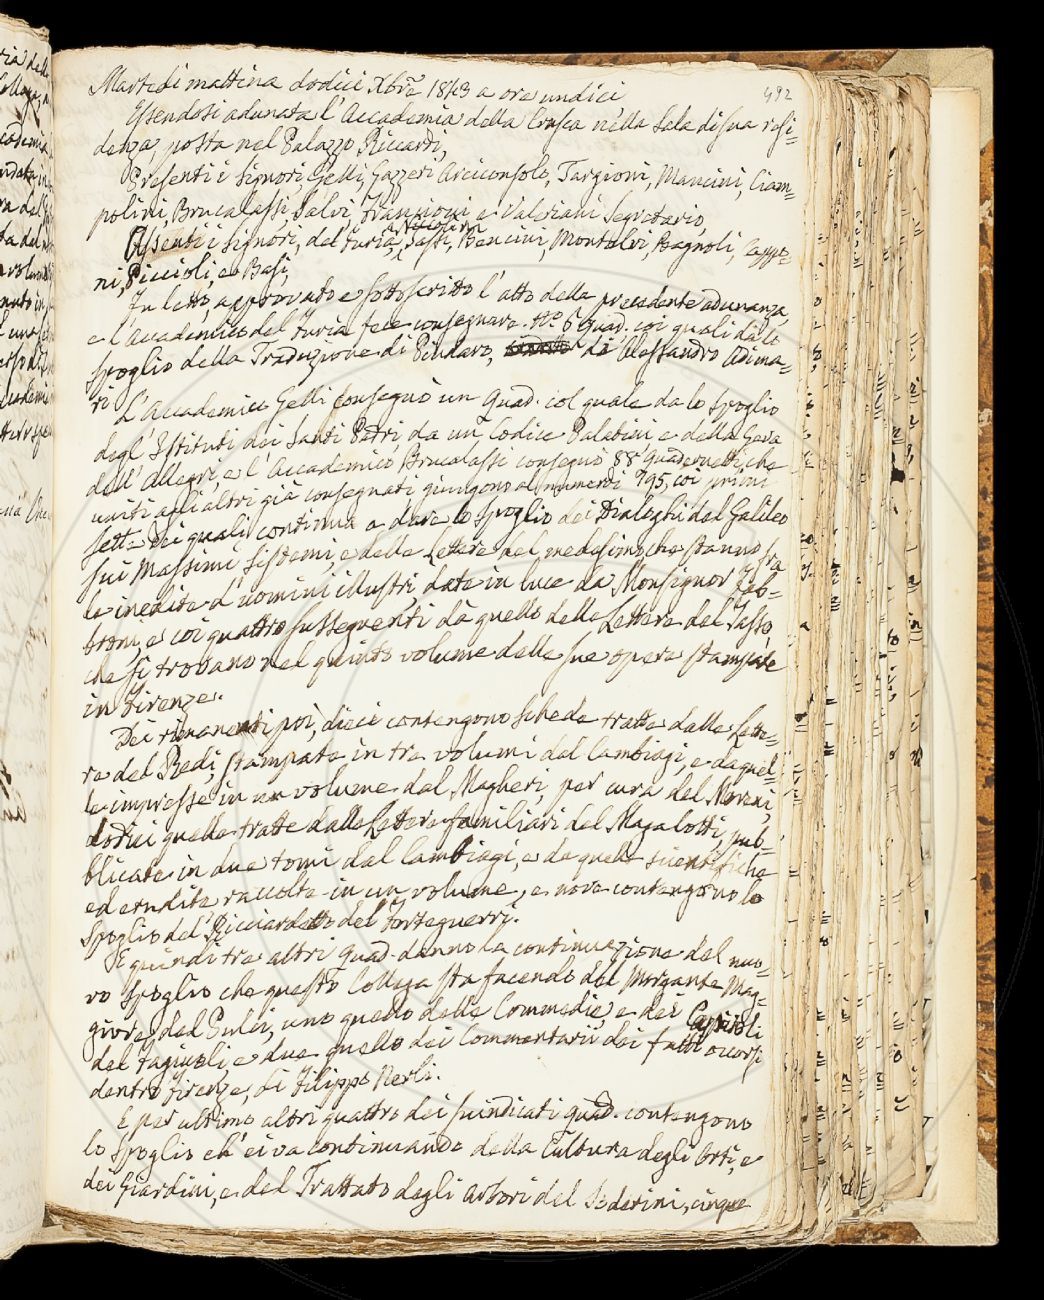 492
Martedì mattina dodici Xbre 1843 a ore undici
Essendosi adunata l'Accademia della Crusca nella Sala di sua resi=
denza, posta nel Palazzo Riccardi,
Presenti i Signori, Gelli, Gazzeri Arciconsolo, Targioni, Mancini, Ciam=
polini, Brucalassi, Salvi, Franscioni e Valeriani Segretario,
Niccolini
Assenti i Signori, del Furia, Sassi, Bencini, Montalvi, Bagnoli, Cappo=
ni, Piccioli, e Basi,
Fu letto, approvato e sottoscritto l'atto della precedente adunanza,
e l'Accademico del Furia fece consegnare N.° 6 Quad. coi quali dà lo
spoglio della Traduzione di Pindaro, di Alessandro Adima=
ri
L'Accademico Gelli consegnò un Quad. col quale da lo spoglio
degl'Istituti dei Santi Padri, da un Codice Palatini e della Gera
dell'Allegri, e l'Accademico Brucalassi consegnò 88 quadernetti, che
uniti agli altri già consegnati, giungono al numerò 795, coi primi
sette dei quali continua a dare lo spoglio dei Dialoghi del Galileo
sui Massimi Sistemi, e delle Lettere del medesimo che stanno fra
le inedite d'uomini illustri date in luce da Monsignor Fab=
broni, e coi quattro susseguenti dà quello delle Lettere del Tasso,
che si trovano nel quinto volume delle sue opere stampate
in Firenze.
Dei rimanenti poi, dieci contengono schede tratte dalle Lette=
re del Redi, stampate in tre volumi dal Cambiagi, e da quel=
le impresse in un volume dal Magheri, per cura del Moreni,
dodici quelle tratte dalle Lettere familiari del Magalotti, pub=
blicate in due tomi dal Cambiagi, e da quelle scientifiche
ed erudite raccolte in un volume, e nove contengono lo
spoglio del Ricciardetto del Forteguerri.
E quindi tre altri Quad. danno la continuazione del nuo=
vo spoglio che questo Collega sta facendo del Morgante Mag=
giore del Pulci, uno quello delle Commedie, e dei Capitoli
del Fagiuoli, e due quello dei Commentarii dei fatti occorsi
dentro Firenze, di Filippo Nerli.
E per ultimo altri quattro dei suindicati quad. contengono
lo spoglio ch'ei va continuando della Cultura degli Orti, e
dei Giardini, e del Trattato degli Arbori del Soderini, cinque